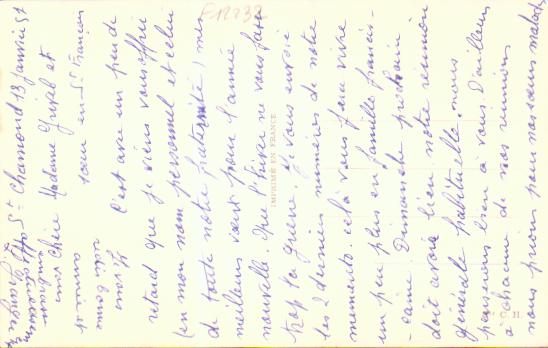 St Chamond 13 janvier 57
Chère Madame Grivel et
sœur en St François
C'est avec un peu de
retard que je viens vous offrir
(en mon nom personnel et celui
de toute notre fraternité) mes
meilleurs vœux pour l'année
nouvelle. Que l'hiver ne vous fasse
trop souffrir. Je vous envoie
les 2 derniers numéros de notre
memento. cela vous fera vivre
un peu plus en famille francis-
-caine. Dimanche prochain
doit avoir lieu notre réunion
générale habituelle. nous
penserons bien à vous. D'ailleurs
à chacune de nos réunions
nous prions pour nos sœurs malades
Je vous embrasse
F12232
IMPRIMÉ EN FRANCE
C. N.